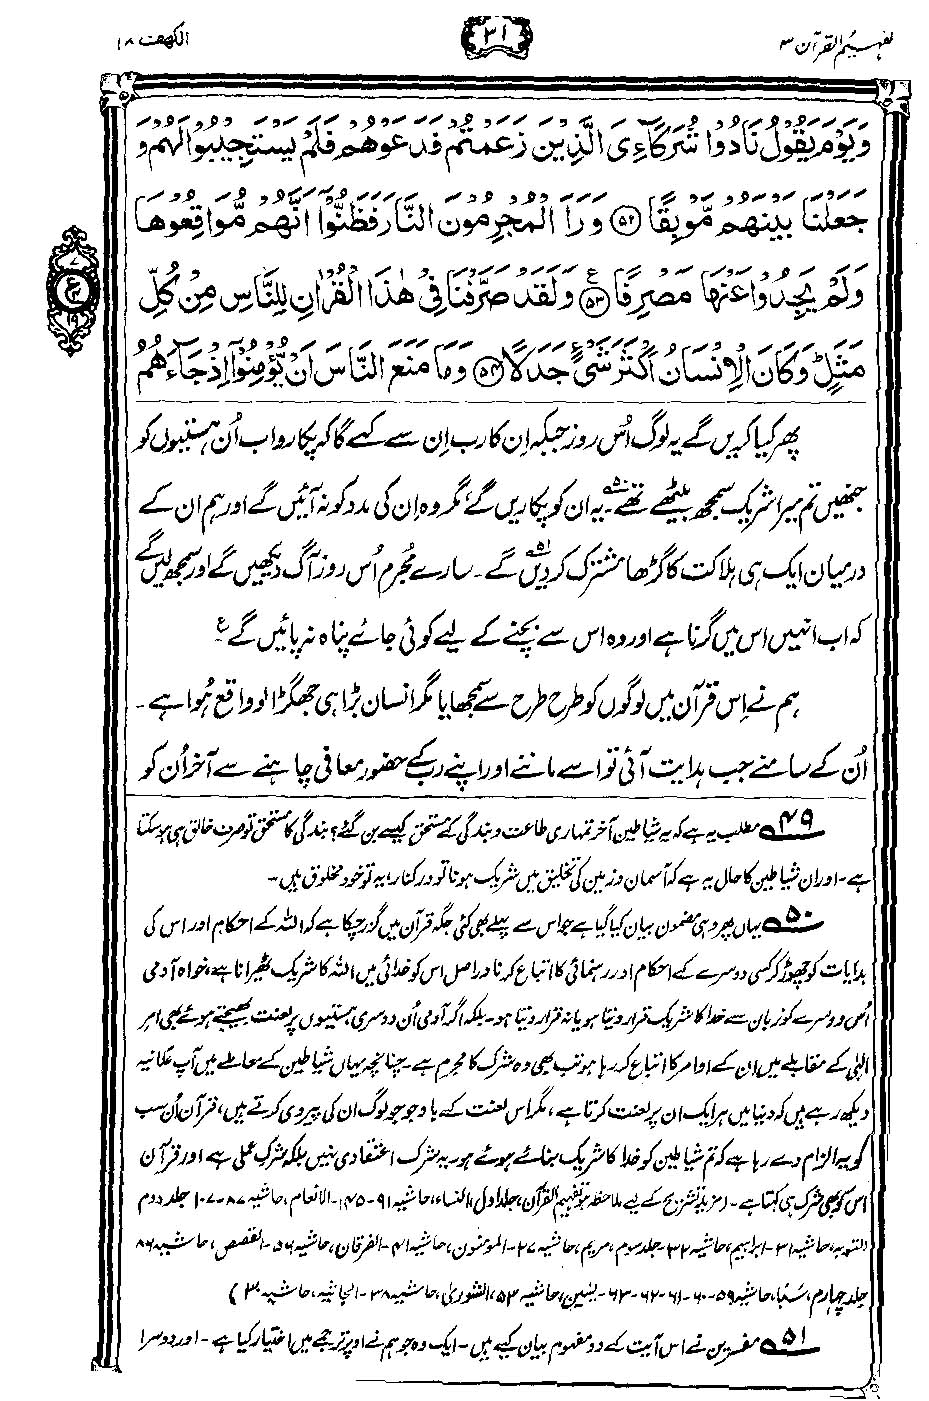 تفہیم القرآن ۳
۳۱
الکہف ۱۸
وَيَوْمَ يَقُولُ نَادُوا شُرَكَآءِيَ الَّذِينَ زَعَمْتُمْ فَدَعَوْهُمْ فَلَمْ يَسْتَجِيبُوا لَهُمْ وَ
جَعَلْنَا بَيْنَهُمْ مَّوْبِقًا ﴿۵۲﴾ وَرَاَ الْمُجْرِمُونَ النَّارَ فَظَنُّوْٓا اَنَّهُمْ مُّوَاقِعُوهَا
وَلَمْ يَجِدُوا عَنْهَا مَصْرِفًا ﴿۵۳﴾ ع وَلَقَدْ صَرَّفْنَا فِيْ هٰذَا الْقُرْاٰنِ لِلنَّاسِ مِنْ كُلِّ
مَثَلٍ ؕ وَكَانَ الْاِنْسَانُ اَكْثَرَ شَيْءٍ جَدَلًا ﴿۵۴﴾ وَمَا مَنَعَ النَّاسَ اَنْ يُّؤْمِنُوْٓا اِذْ جَآءَهُمُ
۷
ع
۱۹
پھر کیا کریں گے یہ لوگ اُس روز جبکہ اِن کا رب اِن سے کہے گا کہ پکارو اب اُن ہستیوں کو
جنھیں تم میرا شریک سمجھ بیٹھے تھے۵۰۔ یہ ان کو پکاریں گے، مگر وہ اِن کی مدد کو نہ آئیں گے اور ہم ان کے
درمیان ایک ہی ہلاکت کا گڑھا مشترک کر دیں۵۱ گے۔ سارے مُجرم اُس روز آگ دیکھیں گے اور سمجھ لیں گے
کہ اب انہیں اس میں گرنا ہے اور وہ اس سے بچنے کے لیے کوئی جائے پناہ نہ پائیں گے۔ ع
ہم نے اِس قرآن میں لوگوں کو طرح طرح سے سمجھایا مگر انسان بڑا ہی جھگڑالو واقع ہُوا ہے۔
اُن کے سامنے جب ہدایت آئی تو اسے ماننے اور اپنے رب کے حضور معافی چاہنے سے آخر اُن کو
۴۹ مطلب یہ ہے کہ یہ شیاطین آخر تمہاری طاعت و بندگی کے مستحق کیسے بن گئے؟ بندگی کا مستحق تو صرف خالق ہی ہو سکتا
ہے۔ اور ان شیاطین کا حال یہ ہے کہ آسمان و زمین کی تخلیق میں شریک ہونا تو درکنار، یہ تو خود مخلوق ہیں۔
۵۰ یہاں پھر وہی مضمون بیان کیا گیا ہے جو اس سے پہلے بھی کئی جگہ قرآن میں گزر چکا ہے کہ اللہ کے احکام اور اس کی
ہدایات کو چھوڑ کر کسی دوسرے کے احکام اور رہنمائی کا اتباع کرنا دراصل اس کو خدائی میں اللہ کا شریک ٹھیرانا ہے، خواہ آدمی
اُس دوسرے کو زبان سے خدا کا شریک قرار دیتا ہو یا نہ قرار دیتا ہو۔ بلکہ اگر آدمی اُن دوسری ہستیوں پر لعنت بھیجتے ہوئے بھی امرِ
الٰہی کے مقابلے میں ان کے اوامر کا اتباع کر رہا ہو تب بھی وہ شرک کا مجرم ہے۔ چنانچہ یہاں شیاطین کے معاملے میں آپ علانیہ
دیکھ رہے ہیں کہ دنیا میں ہر ایک ان پر لعنت کرتا ہے، مگر اس لعنت کے باوجود جو لوگ ان کی پیروی کرتے ہیں، قرآن اُن سب
کو یہ الزام دے رہا ہے کہ تم شیاطین کو خدا کا شریک بنائے ہوئے ہو۔ یہ شرک اعتقادی نہیں بلکہ شرکِ عملی ہے اور قرآن
اس کو بھی شرک ہی کہتا ہے۔ (مزید تشریح کے لیے ملاحظہ ہو تفہیم القرآن، جلد اول، النساء، حاشیہ ۹۱-۱۴۵، الانعام، حاشیہ ۸۷-۱۰۷، جلد دوم
التوبہ، حاشیہ ۳۱- ابراہیم، حاشیہ ۳۲- جلد سوم، مریم، حاشیہ ۲۷- المومنون، حاشیہ ۴۱- الفرقان، حاشیہ ۵۶- القصص، حاشیہ ۸۶
جلد چہارم، سبا، حاشیہ ۵۹-۶۰-۶۱-۶۲-۶۳- یٰسین، حاشیہ ۵۳، الشوریٰ، حاشیہ ۳۸- الجاثیہ، حاشیہ ۳۰)
۵۱ مفسرین نے اس آیت کے دو مفہوم بیان کیے ہیں۔ ایک وہ جو ہم نے اوپر ترجمے میں اختیار کیا ہے۔ اور دوسرا